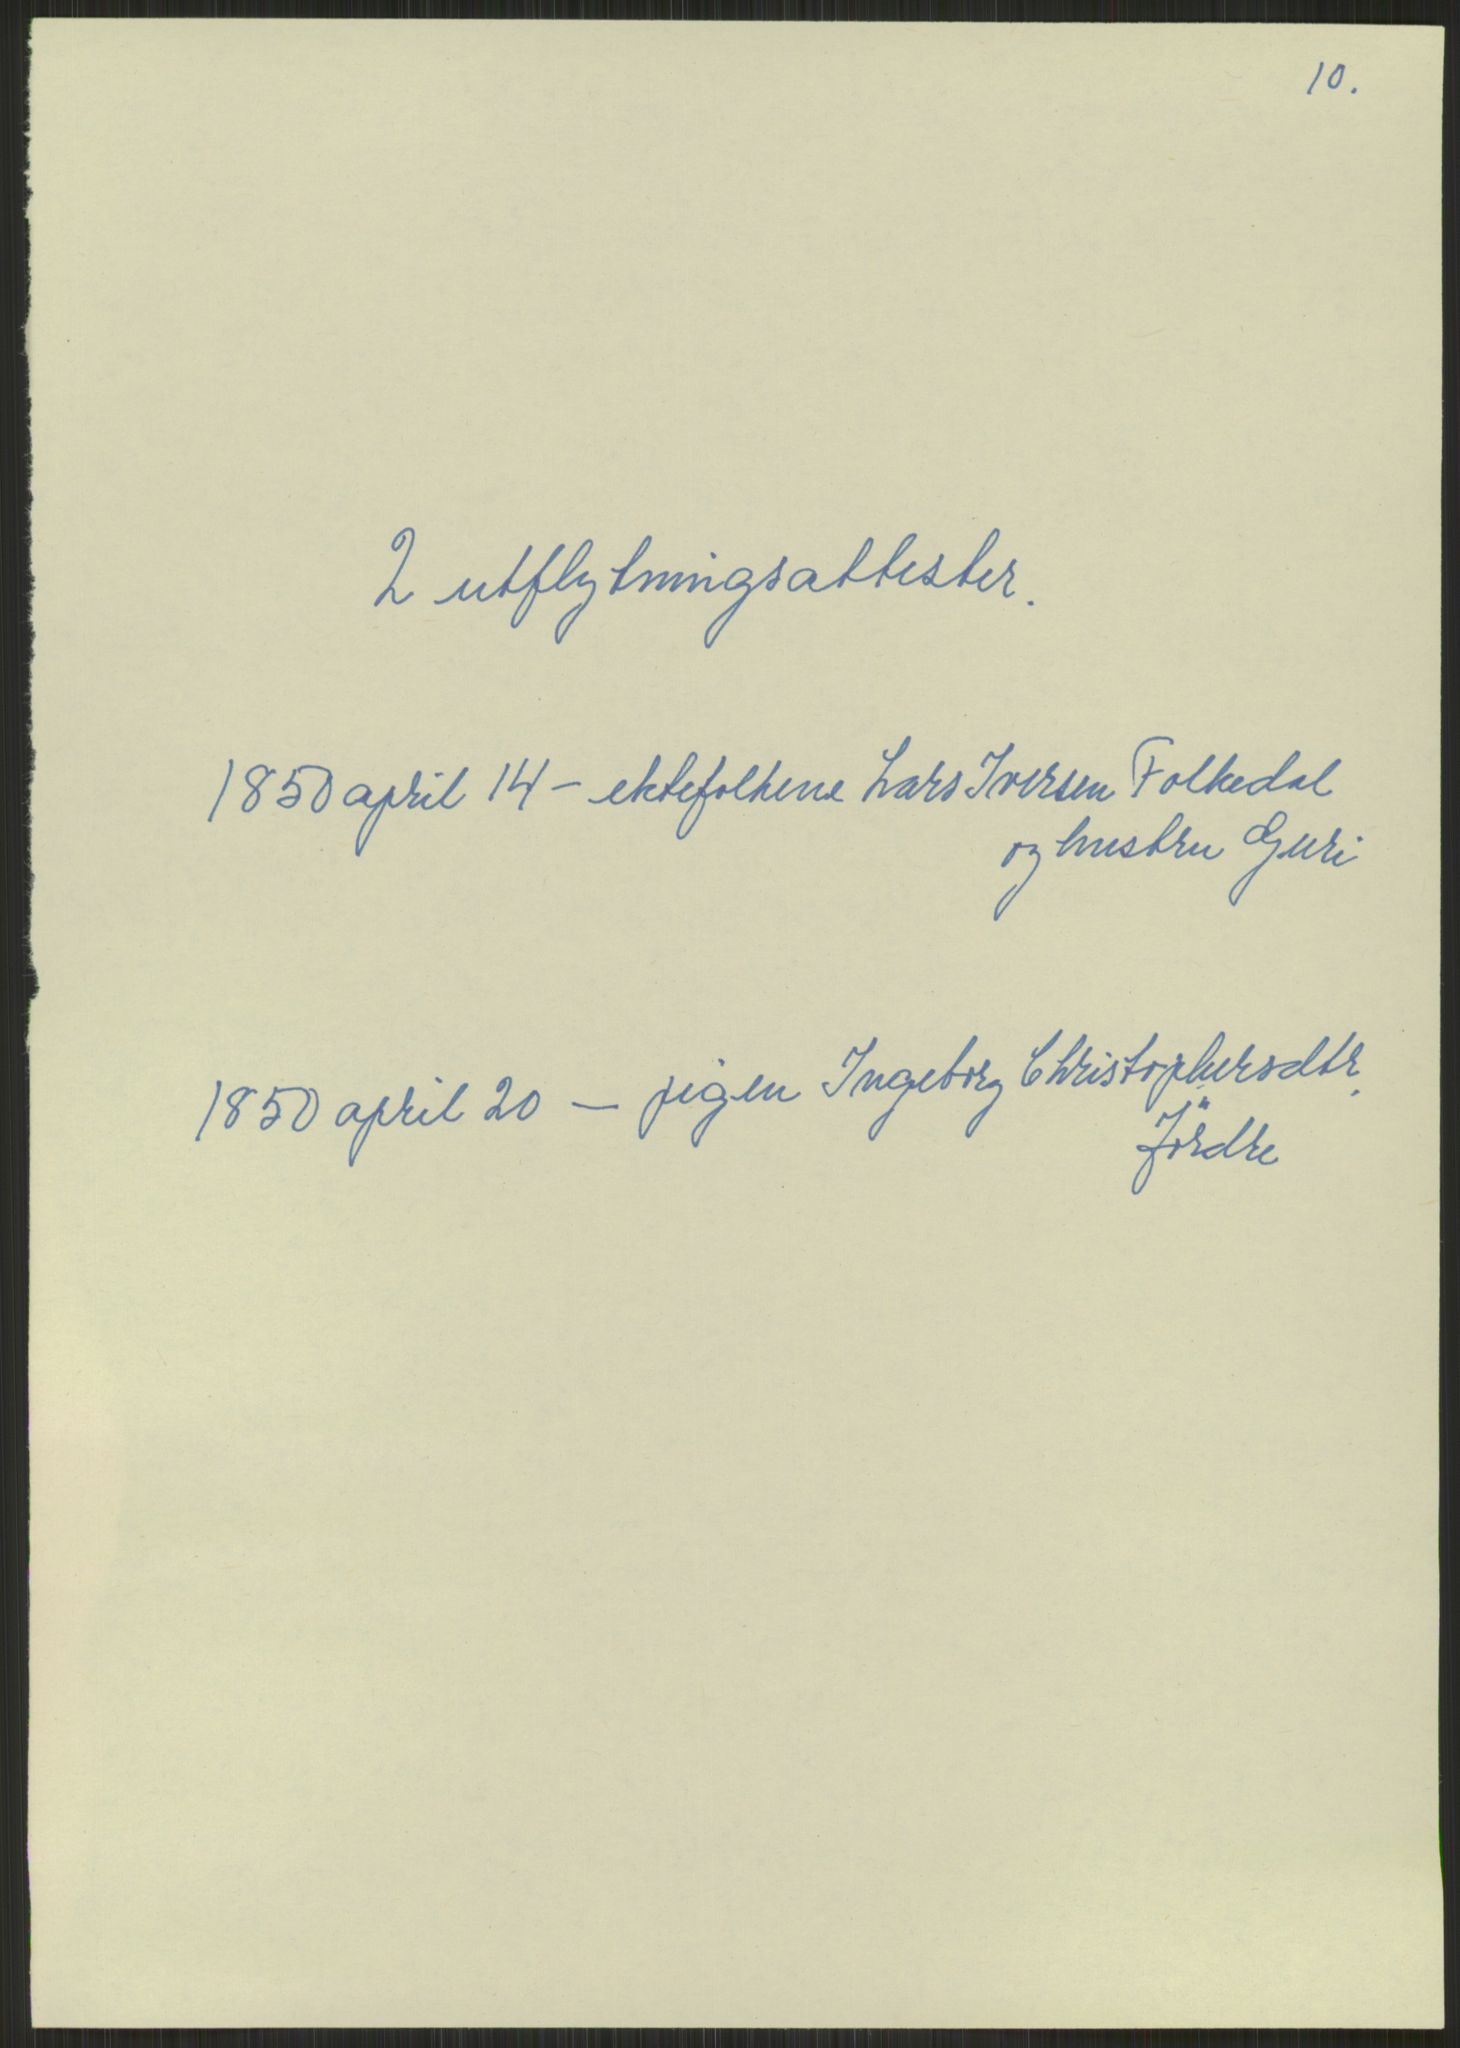 10.
2 utflytningsattester.
1850 april 14 – ektefolkene Lars Iversen Folkedal
og hustru Guri
1850 april 20 – pigen Ingeborg Christophersdtr.
Jördre